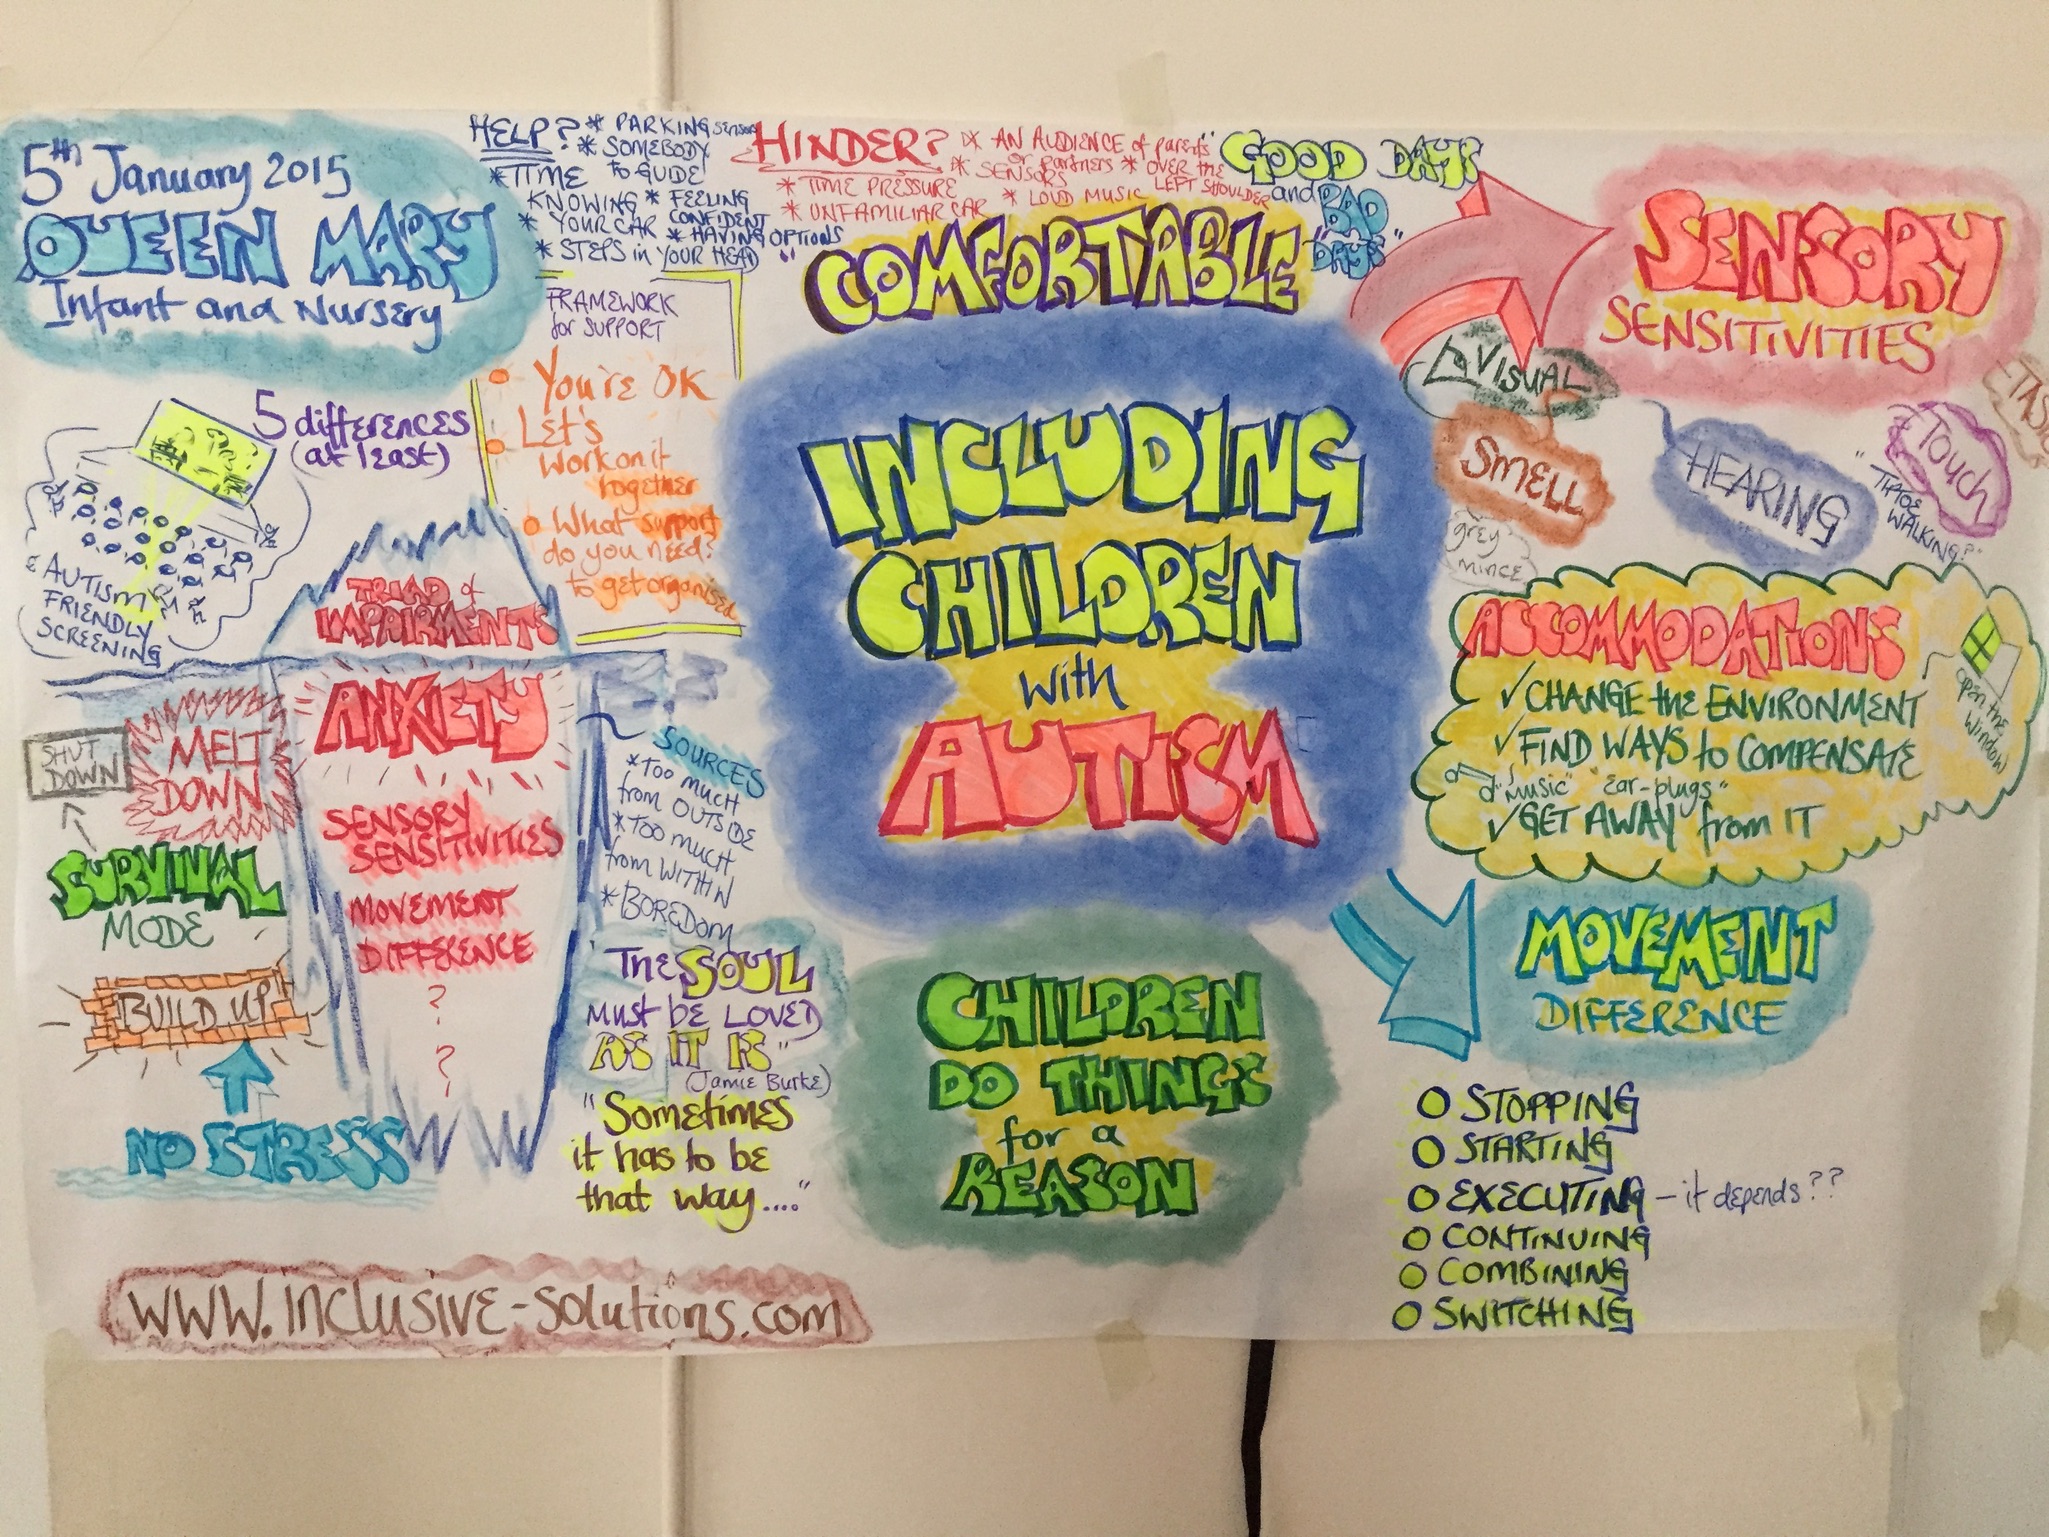 5th January 2015
QUEEN MARY
Infant and Nursery
HELP? * PARKING sensor
* SOMEBODY
to GUIDE
* TIME
KNOWING
* YOUR CAR
* FEELING
CONFIDENT
* HAVING OPTIONS
* STEPS in YOUR HEAD
HINDER? * AN AUDIENCE of parents
or partners
* SENSORS
* OVER the
LEFT SHOULDER
* TIME PRESSURE
* LOUD MUSIC
* UNFAMILIAR CAR
GOOD DAYS
and "BAD
DAYS"
"COMFORTABLE"
FRAMEWORK
for SUPPORT
You're OK
Let's
work on it
together
What support
do you need?
to get organised
5 differences
(at least)
AUTISM
FRIENDLY
SCREENING
TRIAD of
IMPAIRMENTS
ANXIETY
SENSORY
SENSITIVITIES
MOVEMENT
DIFFERENCE
?
?
SHUT
DOWN
MELT
DOWN
SURVIVAL
MODE
BUILD UP
NO STRESS
SOURCES
* TOO MUCH
from OUTSIDE
* TOO MUCH
from WITHIN
* BOREDOM
"The SOUL
MUST BE LOVED
AS IT IS"
(Jamie Burke)
"Sometimes
it has to be
that way...."
www.inclusive-solutions.com
INCLUDING
CHILDREN
with
AUTISM
CHILDREN
DO THINGS
for a
REASON
SENSORY
SENSITIVITIES
VISUAL
SMELL
grey
mince
HEARING
Touch
WALKING?"
ACCOMMODATIONS
✓ CHANGE the ENVIRONMENT
✓ FIND WAYS to COMPENSATE
"MUSIC" "ear-plugs"
✓ GET AWAY from IT
open the
window
MOVEMENT
DIFFERENCE
STOPPING
STARTING
EXECUTING - it depends??
CONTINUING
COMBINING
SWITCHING